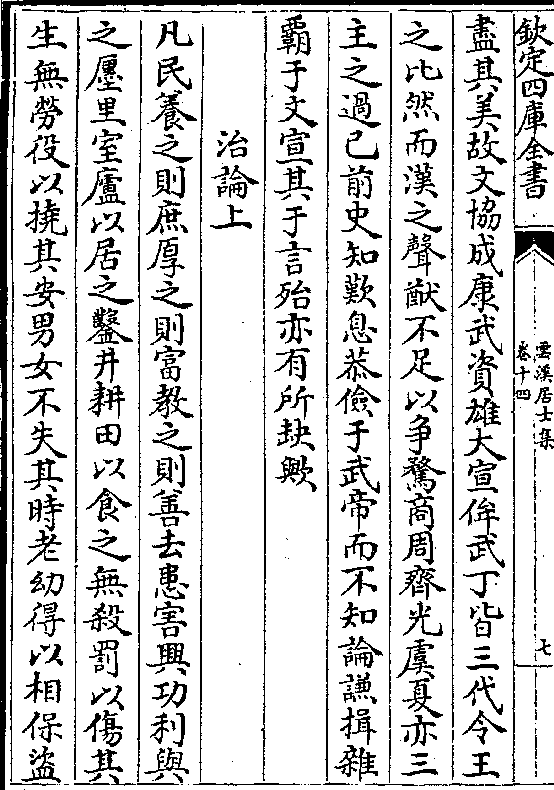 欽定四庫全書
雲溪居士集
卷十四
七
盡其美故文協成康武資雄大宣侔武丁皆三代令王
之比然而漢之聲猷不足以爭騖商周齊光虞夏亦三
主之過已前史知歎息恭儉于武帝而不知論謙揖雜
霸于文宣其于言殆亦有所缺歟
治論上
凡民養之則庶厚之則富教之則善去患害興功利與
之廛里室廬以居之鑿井耕田以食之無殺罰以傷其
生無勞役以撓其安男女不失其時老幼得以相保盜